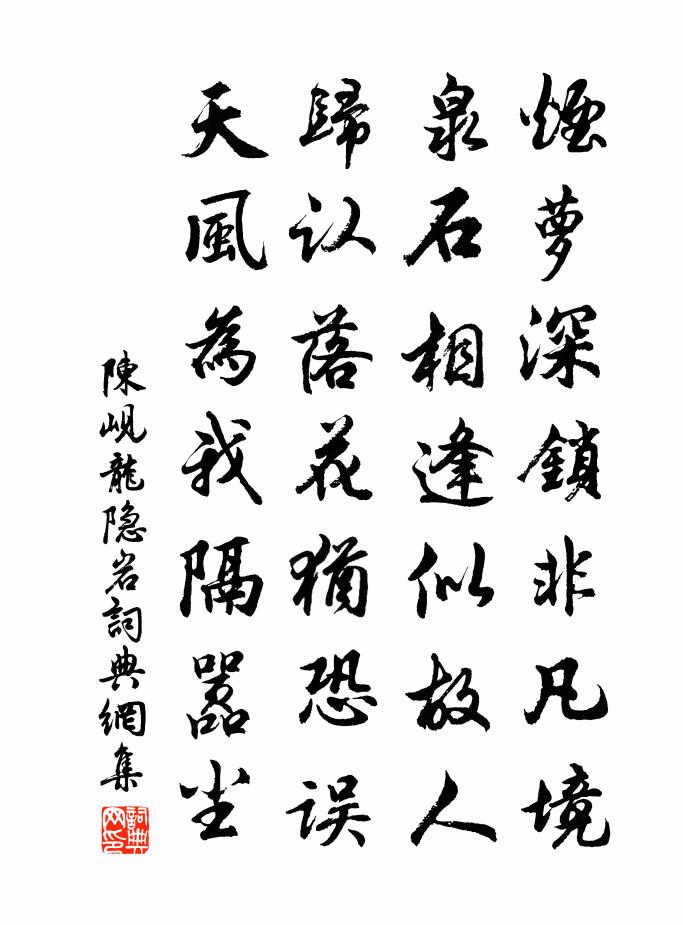 煙蘿深鎖非凡境
泉石相逢似故人
歸认落花猶恐误
天風為我隔嚣尘
陳峴龍隐岩詞典網集
詞典
网印